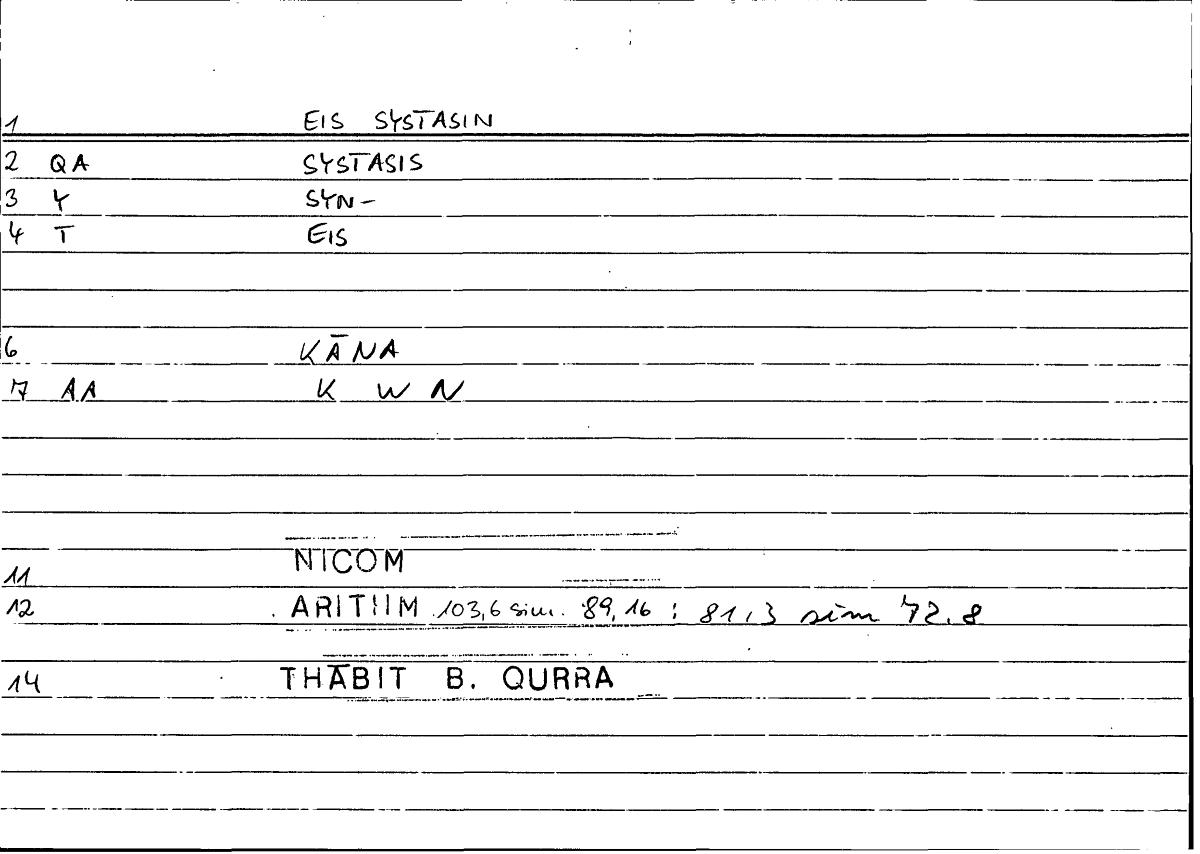 1 EIS SYSTASIN
2 QA SYSTASIS
3 Y SYN-
4 T EIS
6 KĀNA
7 AA K W N
11 NICOM
12 ARITHM 103,6 sim. 89,16 ; 81,3 sim 72.8
14 THĀBIT B. QURRA